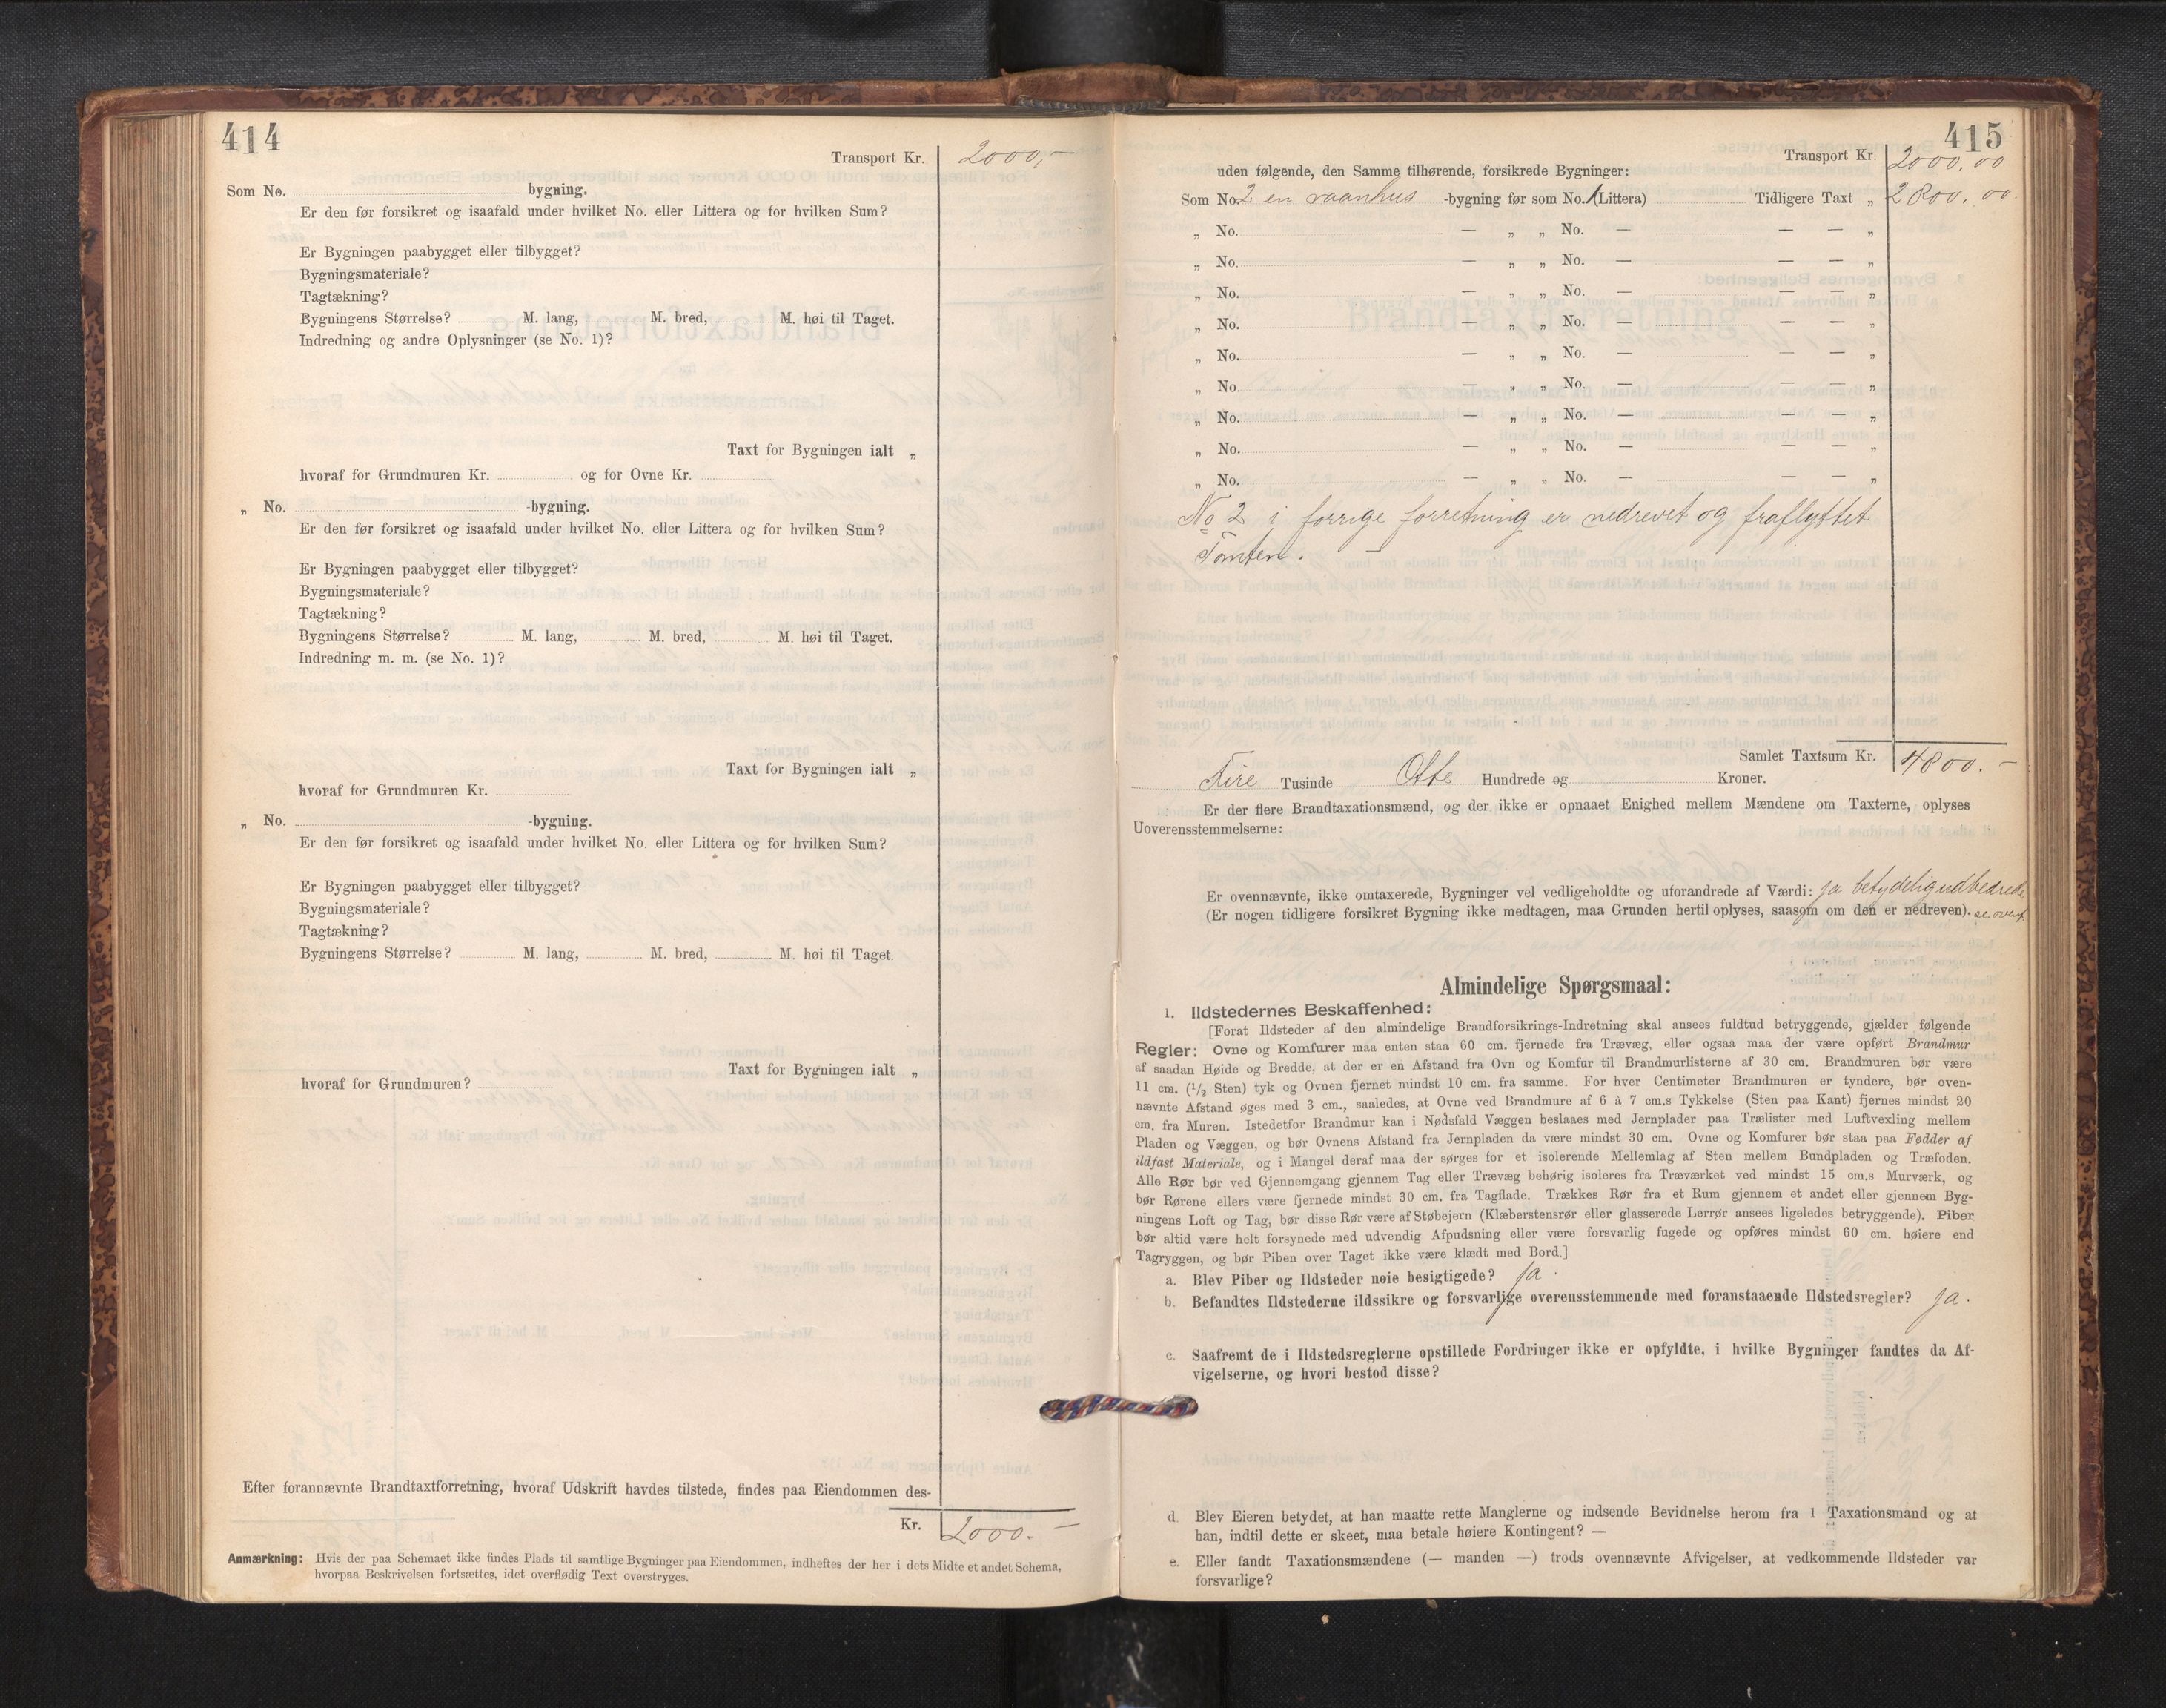 414
Transport Kr. 2000,-
Som No. bygning.
Er den før forsikret og isaafald under hvilket No. eller Littera og for hvilken Sum?
Er Bygningen paabygget eller tilbygget?
Bygningsmateriale?
Tagtækning?
Bygningens Størrelse? M. lang, M. bred, M. høi til Taget.
Indredning og andre Oplysninger (se No. 1)?
Taxt for Bygningen ialt „
hvoraf for Grundmuren Kr. og for Ovne Kr.
„ No. -bygning.
Er den før forsikret og isaafald under hvilket No. eller Littera og for hvilken Sum?
Er Bygningen paabygget eller tilbygget?
Bygningsmateriale?
Tagtækning?
Bygningens Størrelse? M. lang, M. bred, M. høi til Taget.
Indredning m. m. (se No. 1)?
Taxt for Bygningen ialt „
hvoraf for Grundmuren Kr.
„ No. -bygning.
Er den før forsikret og isaafald under hvilket No. eller Littera og for hvilken Sum?
Er Bygningen paabygget eller tilbygget?
Bygningsmateriale?
Tagtækning?
Bygningens Størrelse? M. lang, M. bred, M. høi til Taget.
Taxt for Bygningen ialt „
hvoraf for Grundmuren?
Efter forannævnte Brandtaxtforretning, hvoraf Udskrift havdes tilstede, findes paa Eiendommen des-
Kr. 2000.-
Anmærkning: Hvis der paa Schemaet ikke findes Plads til samtlige Bygninger paa Eiendommen, indheftes der her i dets Midte et andet Schema,
hvorpaa Beskrivelsen fortsættes, idet overflødig Text overstryges.
415
Transport Kr. 2000.00
uden følgende, den Samme tilhørende, forsikrede Bygninger:
Som No. 2 en vaanhus -bygning før som No. 1 (Littera) Tidligere Taxt „ 2800.00
„ No. — „ „ No. — — — „
„ No. — „ „ No. — — — „
„ No. — „ „ No. — — — „
„ No. — „ „ No. — — — „
„ No. — „ „ No. — — — „
„ No. — „ „ No. — — — „
„ No. — „ „ No. — — — „
„ No. — „ „ No. — — — „
„ No. — „ „ No. — — — „
No 2 i forrige forretning er nedrevet og fraflyttet
Tomten.
Samlet Taxtsum Kr. 4800.-
Fire Tusinde Otte Hundrede og Kroner.
Er der flere Brandtaxationsmænd, og der ikke er opnaaet Enighed mellem Mændene om Taxterne, oplyses
Uoverensstemmelserne:
Er ovennævnte, ikke omtaxerede, Bygninger vel vedligeholdte og uforandrede af Værdi: ja betydelig udbedrede
(Er nogen tidligere forsikret Bygning ikke medtagen, maa Grunden hertil oplyses, saasom om den er nedreven). se ovenf.
Almindelige Spørgsmaal:
1. Ildstedernes Beskaffenhed:
[Forat Ildsteder af den almindelige Brandforsikrings-Indretning skal ansees fuldtud betryggende, gjælder følgende
Regler: Ovne og Komfurer maa enten staa 60 cm. fjernede fra Trævæg, eller ogsaa maa der være opført Brandmur
af saadan Høide og Bredde, at der er en Afstand fra Ovn og Komfur til Brandmurlisterne af 30 cm. Brandmuren bør være
11 cm. (1/2 Sten) tyk og Ovnen fjernet mindst 10 cm. fra samme. For hver Centimeter Brandmuren er tyndere, bør oven-
nævnte Afstand øges med 3 cm., saaledes, at Ovne ved Brandmure af 6 à 7 cm.s Tykkelse (Sten paa Kant) fjernes mindst 20
cm. fra Muren. Istedetfor Brandmur kan i Nødsfald Væggen beslaaes med Jernplader paa Trælister med Luftvexling mellem
Pladen og Væggen, og bør Ovnens Afstand fra Jernpladen da være mindst 30 cm. Ovne og Komfurer bør staa paa Fødder af
ildfast Materiale, og i Mangel deraf maa der sørges for et isolerende Mellemlag af Sten mellem Bundpladen og Træfoden.
Alle Rør bør ved Gjennemgang gjennem Tag eller Trævæg behørig isoleres fra Træværket ved mindst 15 cm.s Murværk, og
bør Rørene ellers være fjernede mindst 30 cm. fra Tagflade. Trækkes Rør fra et Rum gjennem et andet eller gjennem Byg-
ningens Loft og Tag, bør disse Rør være af Støbejern (Klæberstensrør eller glasserede Lerrør ansees ligeledes betryggende). Piber
bør altid være helt forsynede med udvendig Afpudsning eller være forsvarlig fugede og opføres mindst 60 cm. høiere end
Tagryggen, og bør Piben over Taget ikke være klædt med Bord.]
a. Blev Piber og Ildsteder nøie besigtigede? ja.
b. Befandtes Ildstederne ildssikre og forsvarlige overensstemmende med foranstaaende Ildstedsregler? ja.
c. Saafremt de i Ildstedsreglerne opstillede Fordringer ikke er opfyldte, i hvilke Bygninger fandtes da Af-
vigelserne, og hvori bestod disse?
d. Blev Eieren betydet, at han maatte rette Manglerne og indsende Bevidnelse herom fra 1 Taxationsmand og at
han, indtil dette er skeet, maa betale høiere Kontingent? —
e. Eller fandt Taxationsmændene (— manden —) trods ovennævnte Afvigelser, at vedkommende Ildsteder var
forsvarlige?